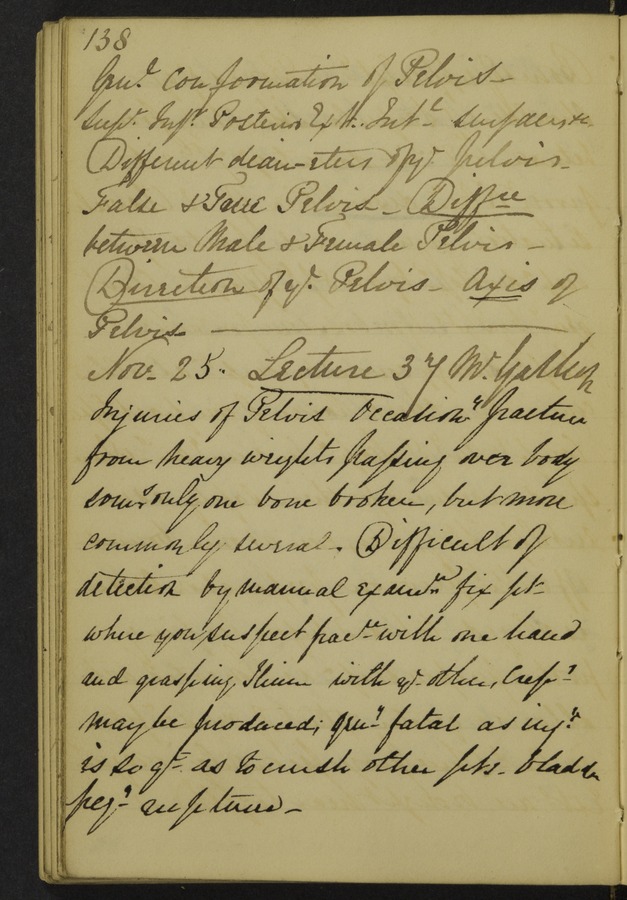 138
Genl. Conformation of Pelvis -
Supr. Infr. Posterior Extl. Intl. surfaces &c
Different diameters of ye. pelvis -
False & True Pelvis - Diffce
between Male & Female Pelvis -
Direction of ye. Pelvis - Axis of
Pelvis
Nov. 25. Lecture 37 Mr.
Injuries of Pelvis Occasionly fracture
from heavy weights passing over body
somes only one bone broken, but more
commonly several. Difficult of
detection by manual examn. fix pt.
where you suspect fracr. with one hand
and grasping Ilium with ye. other, Crepn.
may be produced; genly fatal as injy.
is so gt. as to crush other pts. bladder
freqy ruptured -